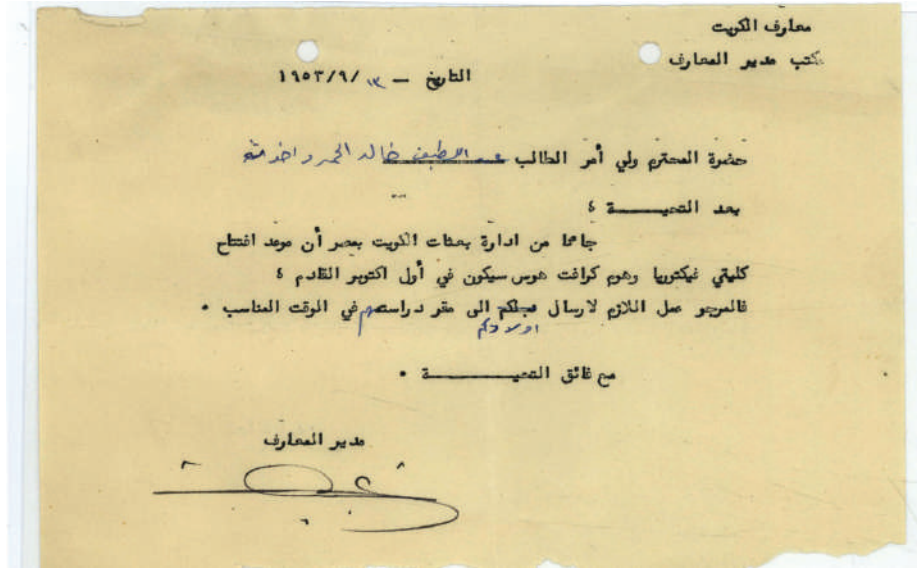 معارف الكويت
مكتب مدير المعارف
التاريخ — ١٣ /١٩٥٣/٩
حضرة المحترم ولي أمر الطالب عبد اللطيف خالد الحمد واخوته
بعد التحيـــــــة ،
جاءنا من ادارة بعثات الكويت بمصر أن موعد افتتاح
كليتي فيكتوريا وهوم كرافت هوس سيكون في أول اكتوبر القادم ،
فالمرجو عمل اللازم لارسال نجلكم الى مقر دراستهم في الوقت المناسب .
اولادكم
مع فائق التحيـــــــة .
مدير المعارف